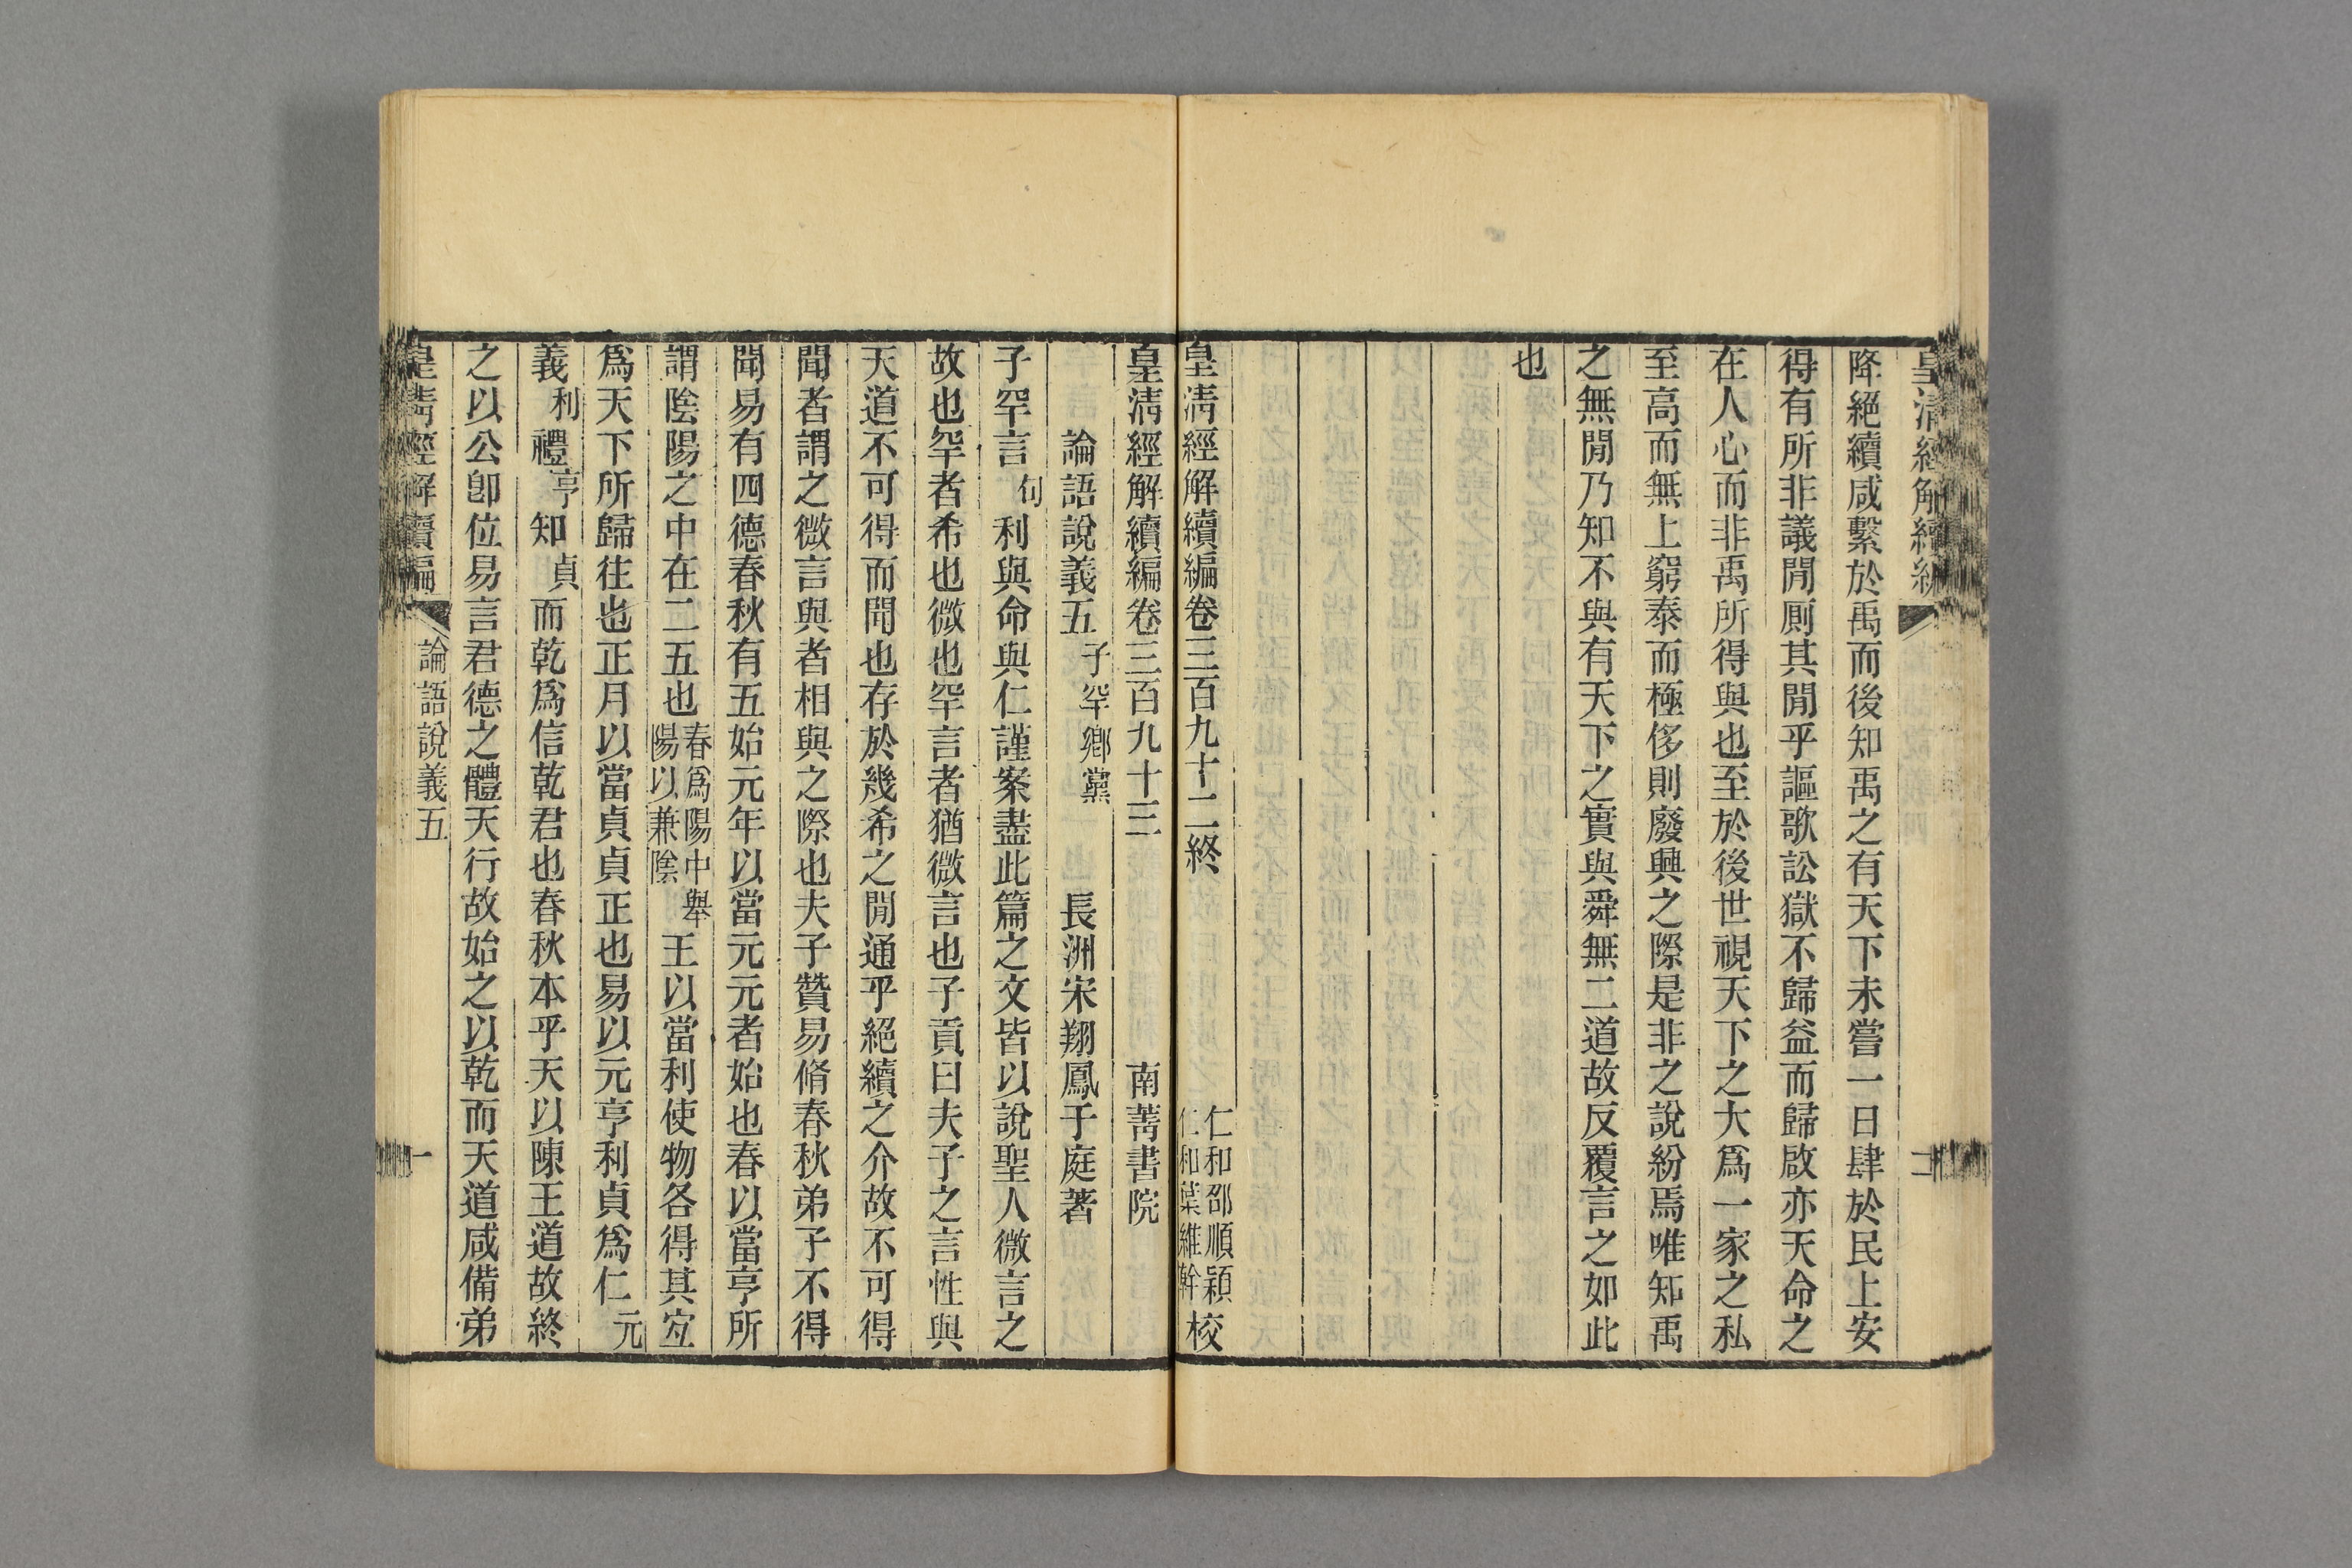 皇清經解續編
二
降絕續咸繫於禹而後知禹之有天下未嘗一日肆於民上安
得有所非議閒廁其閒乎謳歌訟獄不歸益而歸啟亦天命之
在人心而非禹所得與也至於後世視天下之大爲一家之私
至高而無上窮泰而極侈則廢興之際是非之說紛焉唯知禹
之無閒乃知不與有天下之實與舜無二道故反覆言之如此
也
皇清經解續編卷三百九十二終
仁和邵順穎
仁和葉維幹
校
皇清經解續編卷三百九十三 南菁書院
論語說義五 子罕鄉黨 長洲宋翔鳳于庭著
子罕言句利與命與仁謹案盡此篇之文皆以說聖人微言之
故也罕者希也微也罕言者猶微言也子貢曰夫子之言性與
天道不可得而聞也存於幾希之閒通乎絕續之介故不可得
聞者謂之微言與者相與之際也夫子贊易脩春秋弟子不得
聞易有四德春秋有五始元年以當元元者始也春以當亨所
謂陰陽之中在二五也春爲陽中舉陽以兼陰王以當利使物各得其宜
爲天下所歸往也正月以當貞貞正也易以元亨利貞爲仁元
義利禮亨知貞而乾爲信乾君也春秋本乎天以陳王道故終
之以公卽位易言君德之體天行故始之以乾而天道咸備弟
皇清經解續編
論語說義五
一